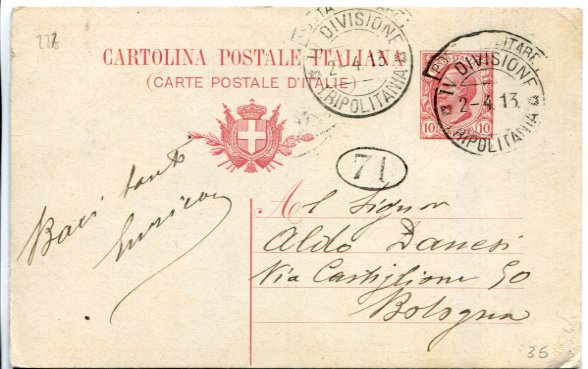 227
CARTOLINA POSTALE ITALIANA
(CARTE POSTALE D'ITALIE)
POSTA MILITARE
IV DIVISIONE
2-4.13.
TRIPOLITANIA
MILITARE
IV DIVISIONE
2-4.13.
TRIPOLITANIA
10 10
71
Baci tanti
Enrico
Al Signor
Aldo Danesi
Via Castiglione 50
Bologna
35